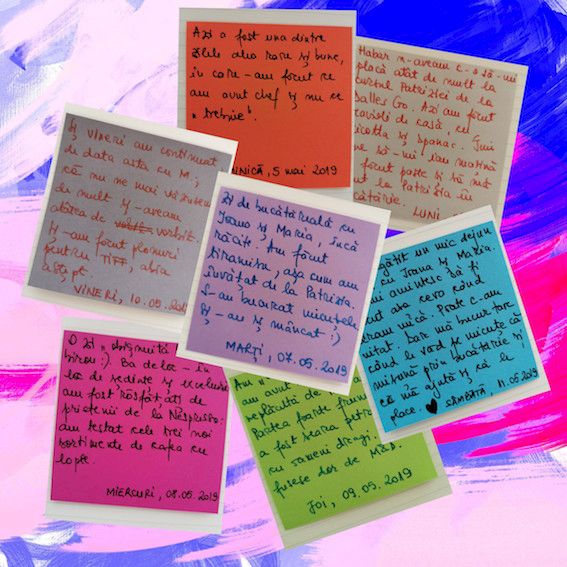 Azi a fost una dintre
zilele alea rare și bune,
în care-am făcut ce
am avut chef și nu ce
"trebuie".
5 mai 2019
Habar n-aveam c-o să-mi
placă atât de mult la
Patriziei de la
Go. Azi am făcut
de casă, cu
ricotta și spanac.
să-mi iau mașină
făcut paste și să mă
la Patrizia în
LUNI
Și VINERI am continuat
de data asta cu M,
că nu ne mai văzusem
de mult și-aveam
atâtea de vorbit.
Și-am făcut planuri
pentru TIFF, abia
aștept.
VINERI, 10.05.2019
Zi de bucătăreală cu
Ioana și Maria, încă
răcite. Am făcut
tiramisu, așa cum am
învățat de la Patrizia.
S-au bucurat micuțele
și-au și mâncat :)
MARȚI, 07.05.2019
un mic dejun
cu Ioana și Maria.
amintesc să fi
cevo când
eram mică. Poate c-am
uitat, dar mă bucur tare
când le văd pe micuțe că
prin bucătărie și
că mă ajută și că le
place. ♥ SÂMBĂTĂ, 11.05.2019
O zi "obișnuită"
birou :). Ba deloc - în
loc de ședințe și
am fost răsfățați de
prietenii de la Nespresso:
am testat cele trei noi
sortimente de cafea cu
lapte.
MIERCURI, 08.05.2019
Am
am avut
plăcută de
Partea foarte
a fost seara
cu oameni dragi.
fusese dor de
JOI, 09.05.2019